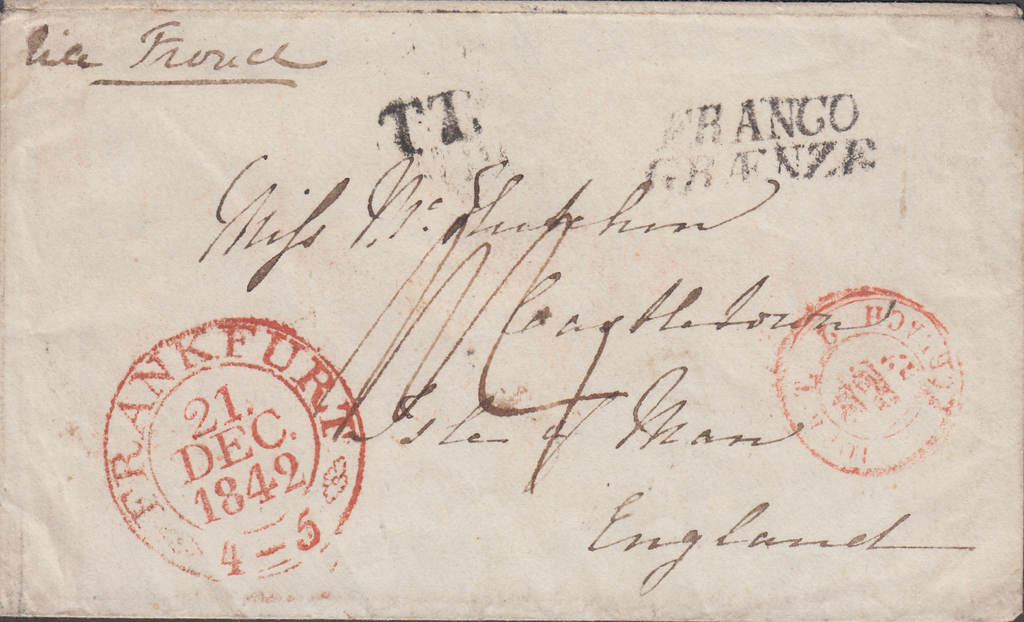 Via France
T.T.
FRANCO
GRÆNZE
Miss Mc Hutchin
Castletown
Isle of Man
England
FRANKFURT
21.
DEC.
1842
4 – 5